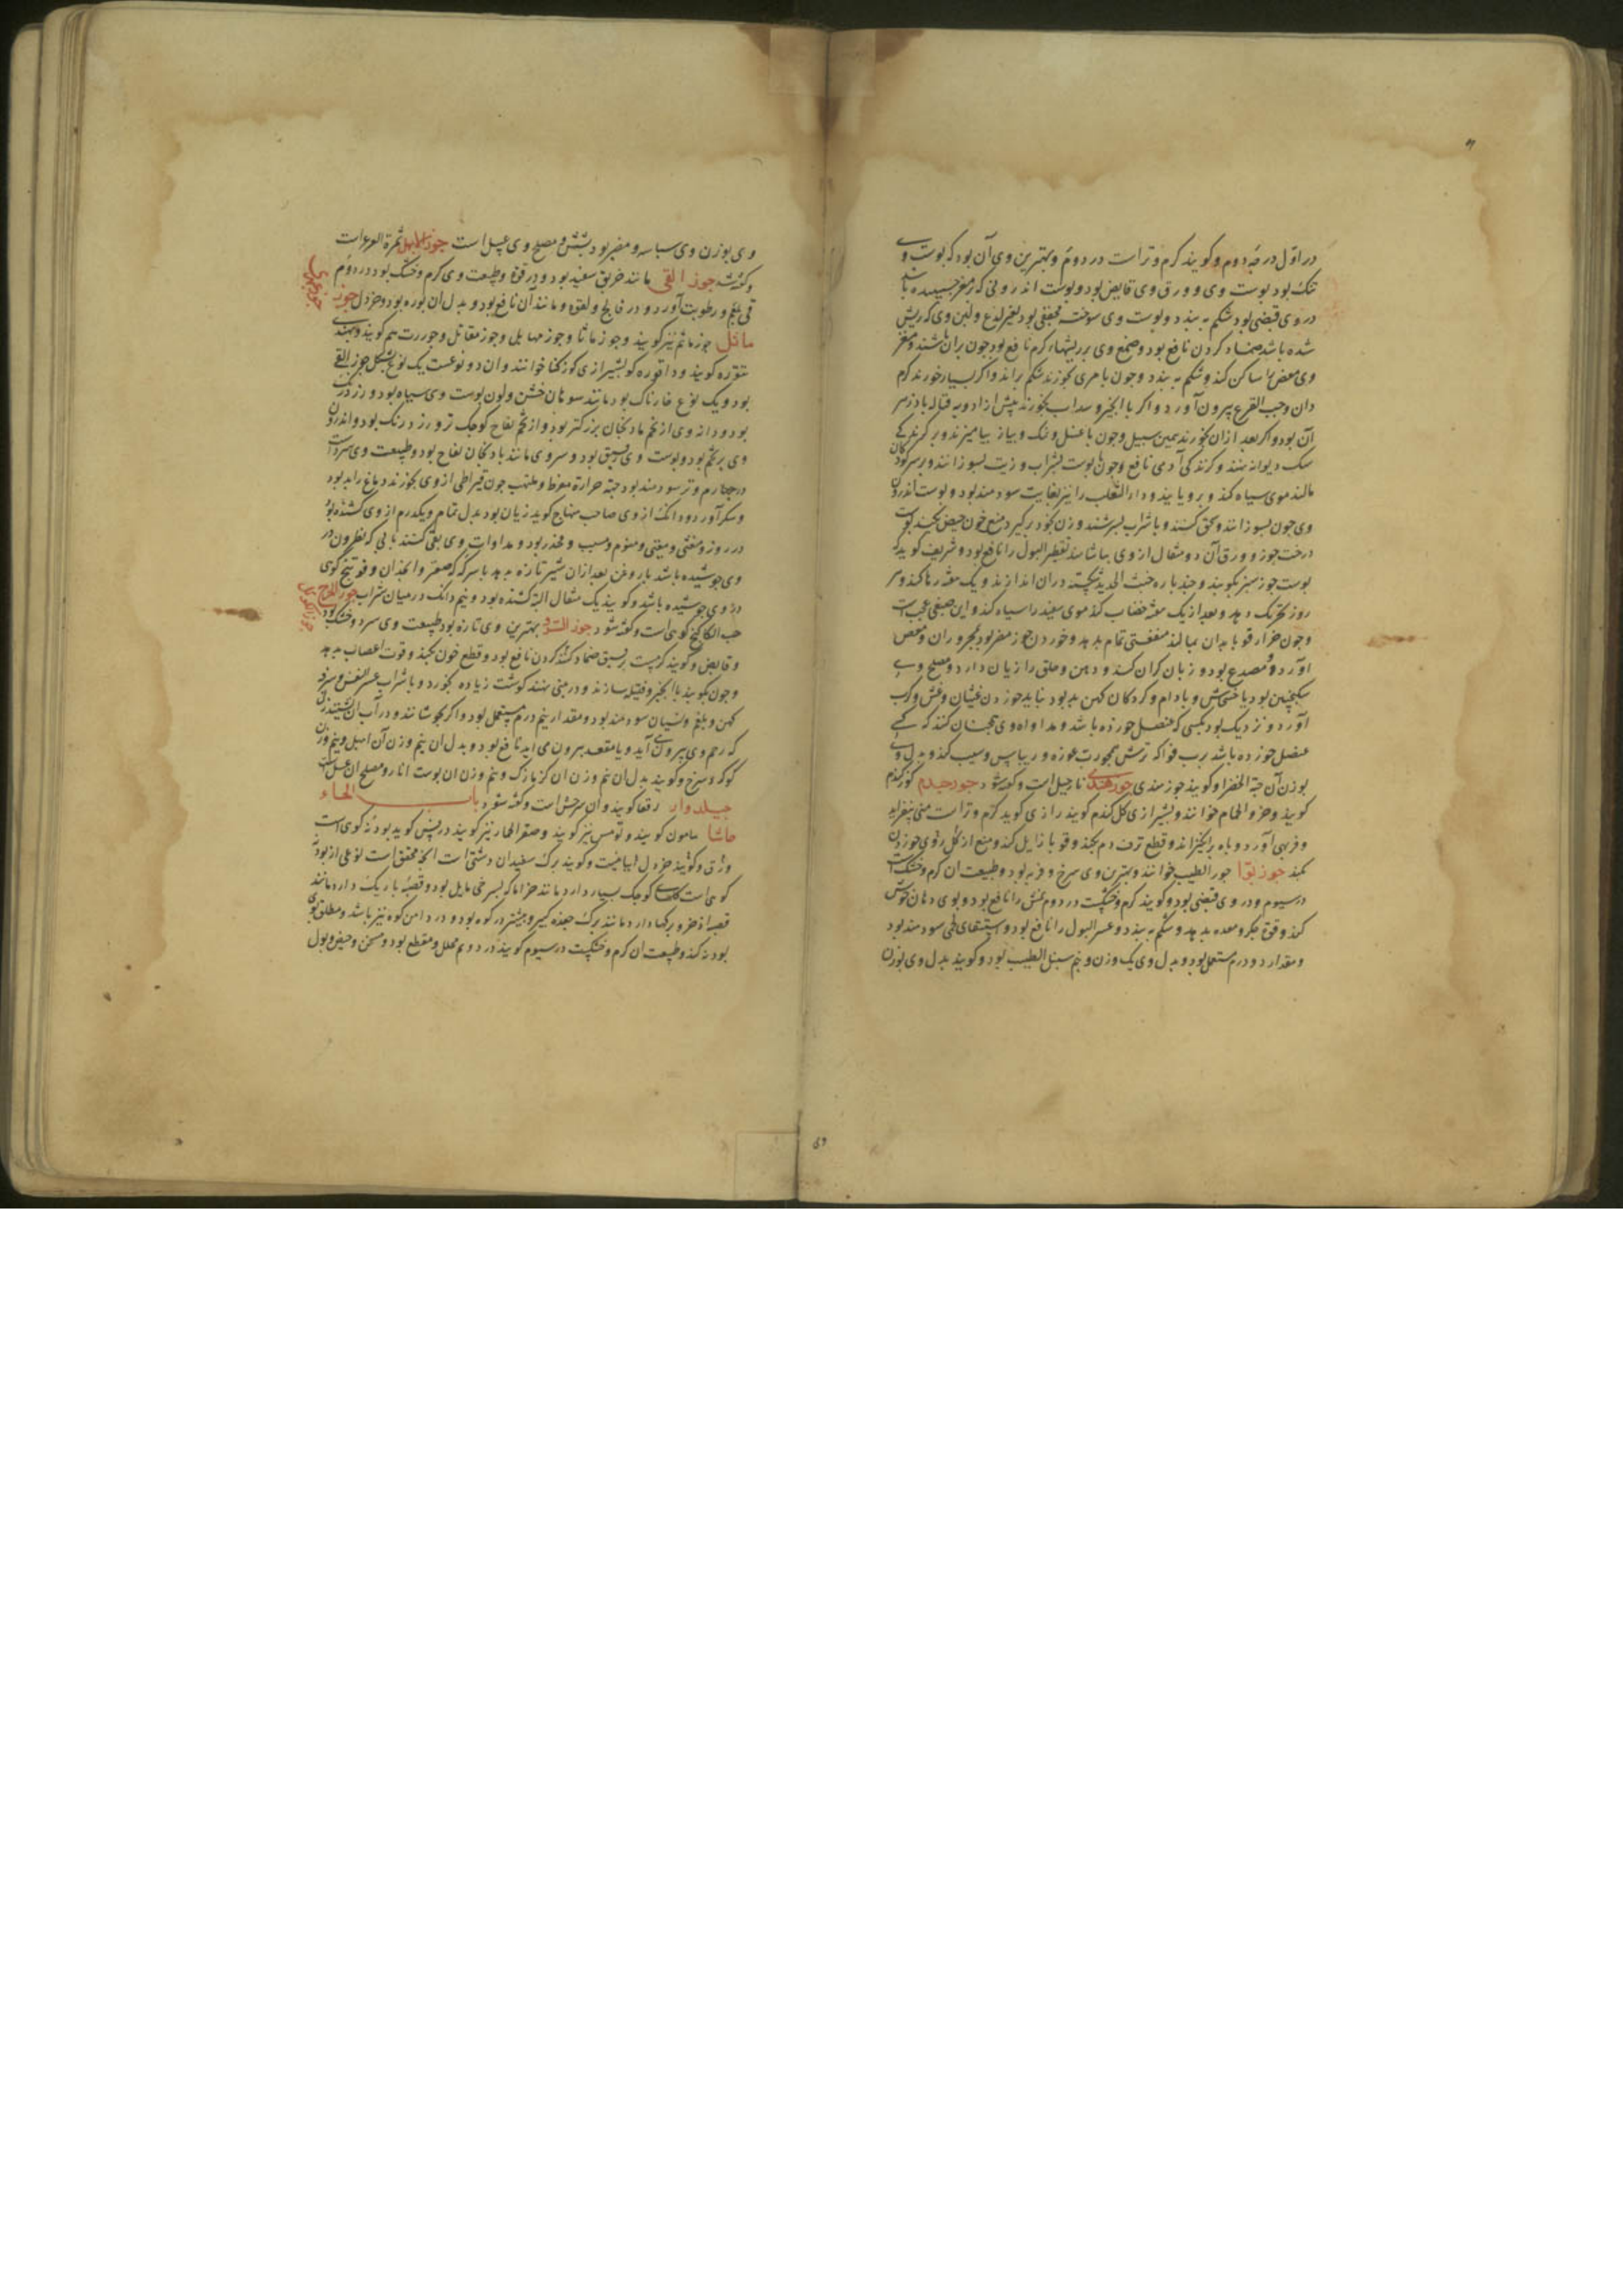 در اول درجه دوم و کویند کرم و تر است در دوم و بهترین وی آن بود که پوست وی
تنک بود پوست وی و ورق وی قابض بود و پوست اندرونی که در مغز چسبیده باشد
در وی قبضی بود شکم به بندد و پوست وی سوخته مجففی بود بغیر لذع و لبن وی که ریش
شده باشد ضماد کردن نافع بود و صمغ وی بر ریشهاء کرم نافع بود چون بران باشند و مغز
وی مغص را ساکن کند و شکم به بندد و چون با مری بخورند شکم براند و اکر بسیار خورند کرم
دان و حب القرع بیرون آورد و اکر با انجیر و سداب بخورند پیش از ادویه قتاله بادزهر
آن بود و اکر بعد ازان بخورند بهمین سبیل و چون با عسل و نمک و پیاز بیامیزند و بر کزندکی
سک دیوانه نهند و کزندکی آدمی نافع بود و چون با پوست بشراب و زیت بسوزانند و بر سر کودکان
مالند موی سیاه کند و برویاند و داء الثعلب را نیز بغایت سودمند بود و پوست اندرون
وی چون بسوزانند و سحق کنند و با شراب بسرشند و زن بخود برکیرد منع خون حیض بکند پوست
درخت جوز و ورق آن دو مثقال از وی بیاشامند تقطیر البول را نافع بود و شریف کوید که
پوست جوز سبز بکوبند و چند پاره خبث الحدید پخته در ان اندازند و یک هفته رها کنند و هر
روز تحریک دهد و بعد از یک هفته خضاب کند موی سفید را سیاه کند و این صبغی عجب است
و چون حزاز و قوبا بدان بمالند منفعتی تمام بدهد و خوردن جوز مضر بود بمحروران و مغص
آورد و مصدع بود و زبان کران کند و دهن و حلق را زیان دارد و مصلح وی
سکنجبین بود یا خشخاش و بادام و کردکان کهن بد بود نباید خوردن غثیان و غش و کرب
آورد و نزدیک بود بکسی که عنصل خورده باشد و مداواه وی همچنان کنند که کسی
عنصل خورده باشد برب فواکه ترش همچو رب غوره و ریباس و سیب کند و بدل وی
بوزن آن حبة الخضرا و کویند جوز هندی جوز هندی نارجیل است و کفته شود جوز جندم کوز کندم
کویند و خرو الحمام خوانند و بشیرازی کل کندم کویند رازی کوید کرم و تر است منی بیفزاید
و فربهی آورد و باه برانکیزاند و قطع نزف دم بکند و قوبا زایل کند و منع از کل
بکند جوز بوّا جوز الطیب خوانند و بهترین وی سرخ و فربه بود و طبیعت ان کرم و خشک است
در سیوم و در وی قبضی بود و کویند کرم و خشکست در دوم نمش را نافع بود و بوی دهان خوش
کند و قوة جکر و معده بدهد و شکم به بندد و عسر البول را نافع بود و استسقای لحمی سودمند بود
و مقدار دو درم مستعمل بود و بدل وی یک وزن و نیم سنبل الطیب بود و کویند بدل وی بوزن
وی بوزن وی بسباسه و مضر بود بشش و مصلح وی عسل است جوز الابهل ثمرة العرعر است
و کفته شد جوز القی مانند خربق سفید بود و در قوة و طبیعت وی کرم و خشک بود در دوم
قی بلغم و رطوبت آورد و در فالج و لقوه و مانند آن نافع بود و بدل ان بوره بود و خردل جوز
ماثل جوز ماثم نیز کویند و جوز ماثا و جوز مهاثل و جوز مقاتل و جوز رب هم کویند و بهندی
تتوره کویند و داتوره کویند بشیرازی کوز کنا خوانند و ان دو نوعست یک نوع بشکل جوز القی
بود و یک نوع خارناک بود مانند سوهان خشن و لون پوست وی سیاه بود و زرد رنک
بود و دانه وی از تخم بادنجان بزرکتر بود و از تخم تفاح کوچک تر و زرد رنک بود و اندرون
وی پر تخم بود و پوست وی سبز بود و سر وی مانند بادنجان تفاح بود و طبیعت وی سرد است
در چهارم و تر سودمند بود جهة حرارة مفرط و ملتهب چون قیراطی از وی بخورند دماغ را بد بود
و سکر آورد و دو دانک از وی صاحب منهاج کوید زیان بود بدل تمام و یکدرم از وی کشنده بود
در روز و مغثی و مقئی و منوم و مسبت و مخدر بود و مداوات وی بقی کنند بابی که نطرون در
وی جوشیده باشد با روغن بعد ازان شیر تازه بدهد با سرکه که صعتر و انجدان و فوتنج کوهی
در وی جوشیده باشد و کویند یک مثقال البته کشنده بود و نیم دانک در میان شراب جوز المرج
حب الکاکنج کوهی است و کفته شود جوز السرو بهترین وی تازه بود طبیعت وی سرد و خشک بود
و قابض و کویند کرمست بر بهق ضماد کردن نافع بود و قطع خون بکند و قوت اعصاب بدهد
و چون بکوبند با انجیر و فتیله سازند و در بینی نهند کوشت زیاده بخورد و با شراب عسر النفس و سرفه
کهن و بلغم و نسیان سودمند بود و مقدار نیم درم مستعمل بود و اکر بجوشانند و در آب ان بنشینند زنی
که رحم وی بیرون آید و یا مقعد بیرون می اید نافع بود و بدل ان نیم وزن آن ابهل و نیم وزن
کوکرد سرخ و کویند بدل ان نیم وزن ان کزمازک و نیم وزن ان پوست انار و مصلح ان عسل است
جیلدوار رقعا کویند و ان سرخش است و کفته شود باب الحاء
حاشا مامون کویند و تومس نیز کویند و صعتر الحمار نیز کویند در یس کوید پودنه کوهی است
و کویند برک سفیدان دشتی است انچه محقق است نوعی از پودنه
کوهی است کوچک بسیار دارد مانند خزاما که بسرخی مایل بود و قصبه باریک دارد مانند
قصبه اذخر و برکها دارد مانند برک جعده کبیر و بیشتر در کوه بود و در دامن کوه نیز باشد و مطلق بوی
پودنه کند و طبیعت ان کرم و خشکست در سیوم کویند در دوم محلل و مقطع بود و مسخن و حیض و بول